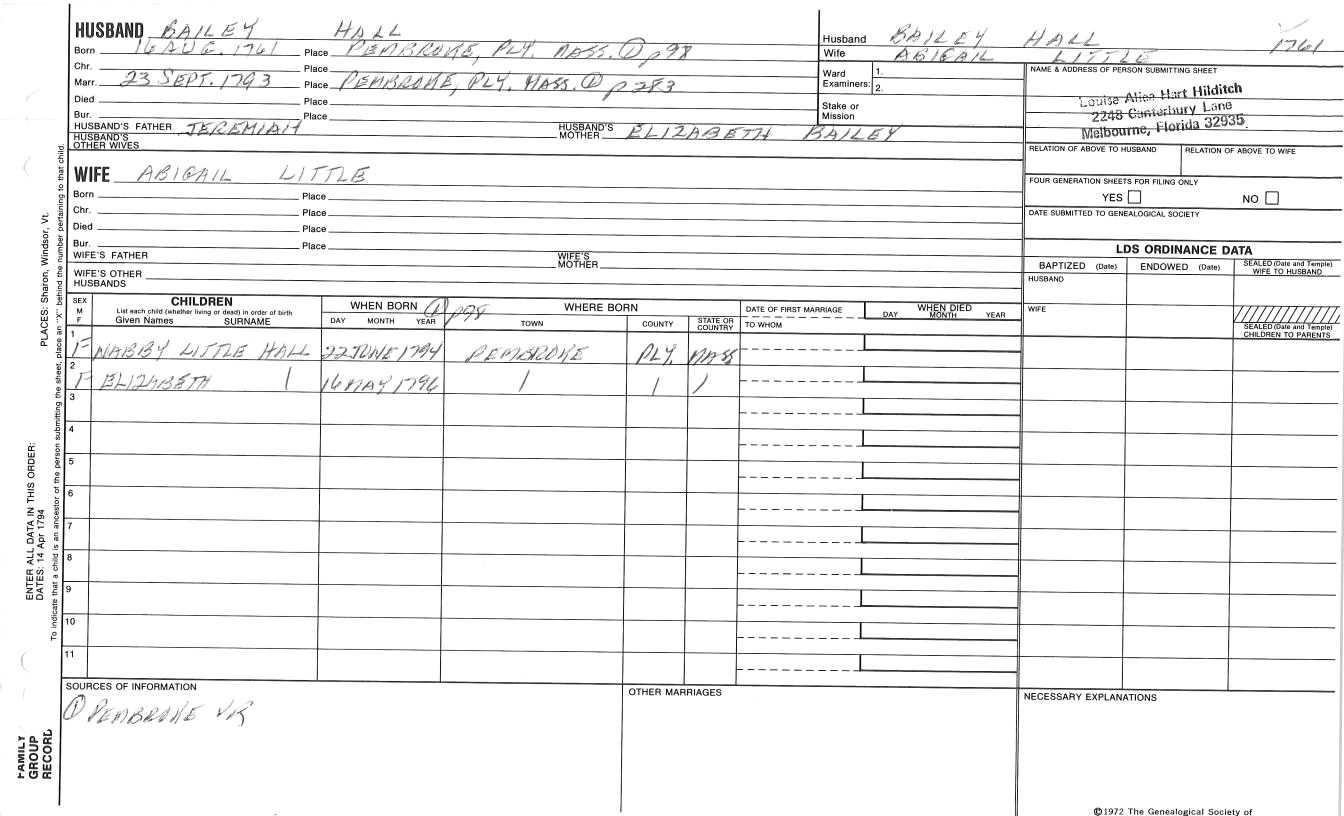 HUSBAND BAILEY HALL
Born 16 AUG. 1761 Place PEMBROKE, PLY. MASS. ① p98
Chr. Place
Marr. 23 SEPT. 1793 Place PEMBROKE, PLY. MASS. ① p 283
Died Place
Bur. Place
HUSBAND'S FATHER JEREMIAH HUSBAND'S MOTHER ELIZABETH BAILEY
HUSBAND'S OTHER WIVES
Husband BAILEY HALL 1761
Wife ABIGAIL LITTLE
Ward Examiners: 1.
2.
Stake or Mission
NAME & ADDRESS OF PERSON SUBMITTING SHEET
Louise Hart Hilditch
2248 Canterbury Lane
Melbourne, Florida 32935
RELATION OF ABOVE TO HUSBAND RELATION OF ABOVE TO WIFE
FOUR GENERATION SHEETS FOR FILING ONLY
YES NO
DATE SUBMITTED TO GENEALOGICAL SOCIETY
WIFE ABIGAIL LITTLE
Born Place
Chr. Place
Died Place
Bur. Place
WIFE'S FATHER WIFE'S MOTHER
WIFE'S OTHER HUSBANDS
LDS ORDINANCE DATA
BAPTIZED (Date) ENDOWED (Date) SEALED (Date and Temple) WIFE TO HUSBAND
HUSBAND
WIFE
SEALED (Date and Temple) CHILDREN TO PARENTS
SEX M F
CHILDREN
List each child (whether living or dead) in order of birth
Given Names SURNAME
WHEN BORN ① p98
DAY MONTH YEAR
WHERE BORN
TOWN COUNTY STATE OR COUNTRY
DATE OF FIRST MARRIAGE
TO WHOM
WHEN DIED
DAY MONTH YEAR
1 F NABBY LITTLE HALL 22 JUNE 1794 PEMBROKE PLY. MASS
2 F ELIZABETH 16 MAY 1796
3
4
5
6
7
8
9
10
11
SOURCES OF INFORMATION
① PEMBROKE VR
OTHER MARRIAGES
NECESSARY EXPLANATIONS
©1972 The Genealogical Society of
FAMILY GROUP RECORD
ENTER ALL DATA IN THIS ORDER:
DATES: 14 Apr 1794 PLACES: Sharon, Windsor, Vt.
To indicate that a child is an ancestor of the person submitting the sheet, place an "X" behind the number pertaining to that child.